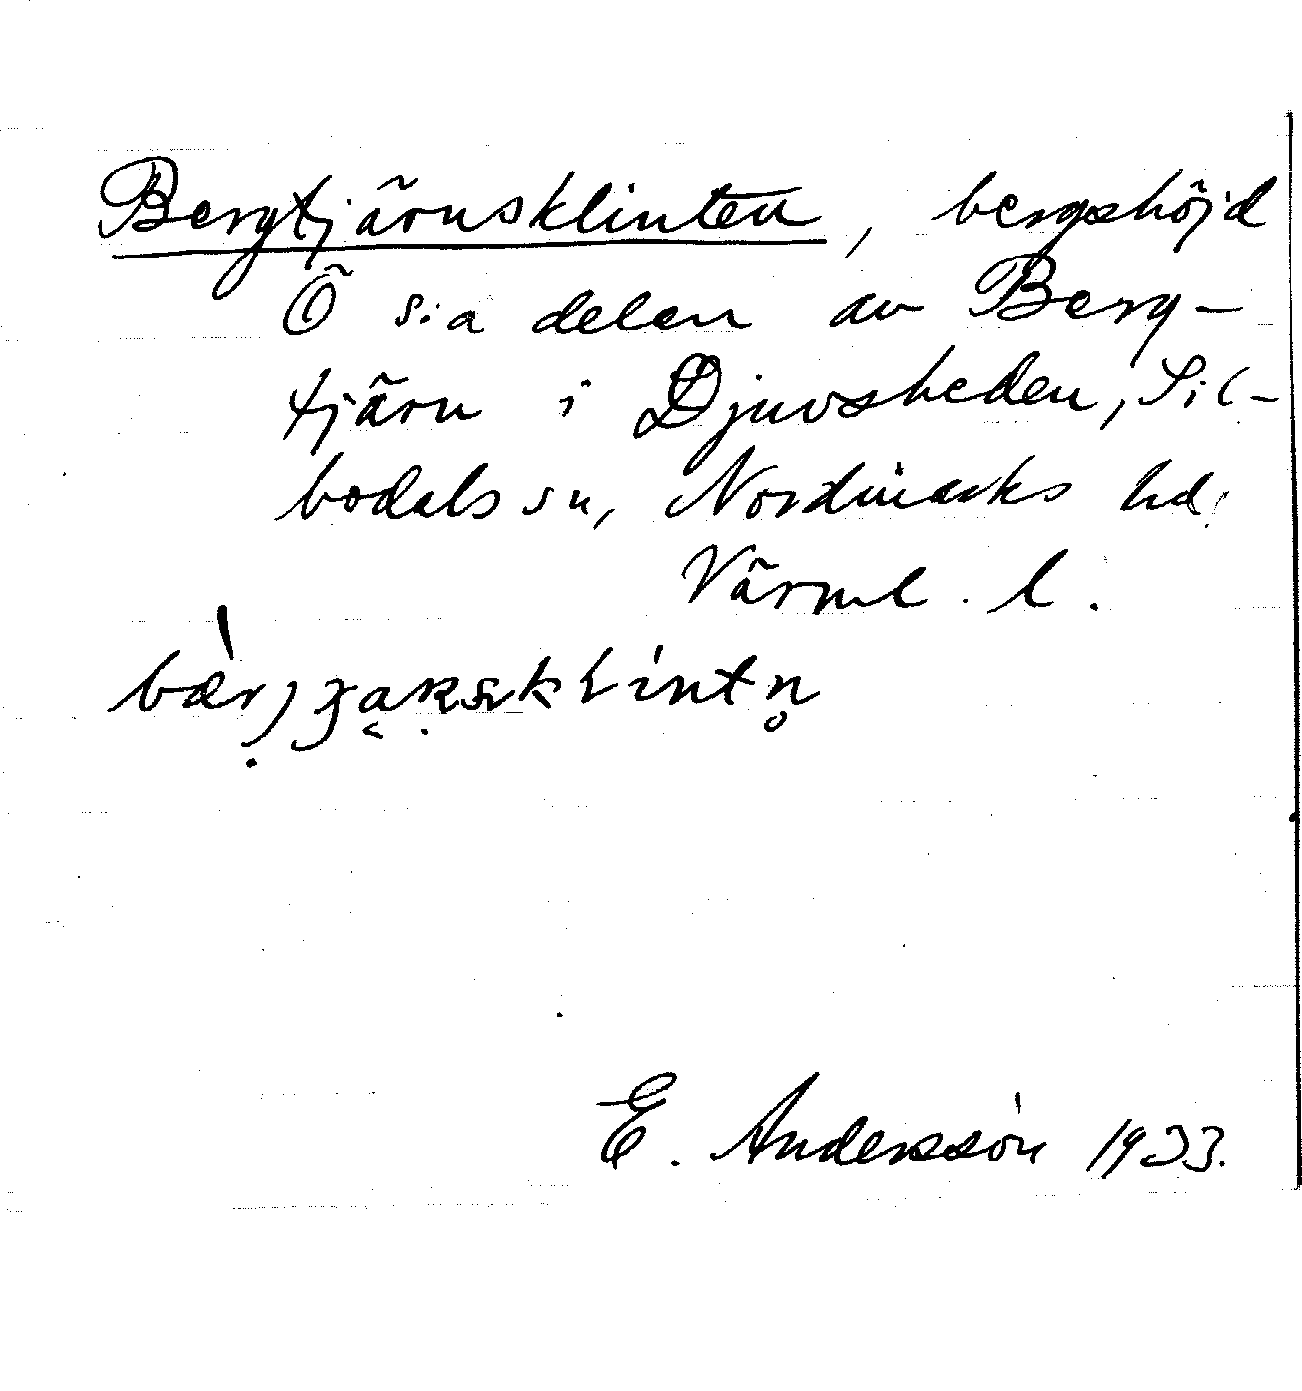 Bergtjärnsklinten, bergshöjd
Ö s:a delen av Berg-
tjärn i Djuvsheden, Sil-
bodals sn, Nordmarks hd.
Värml. l.
E. Andersson 1933.